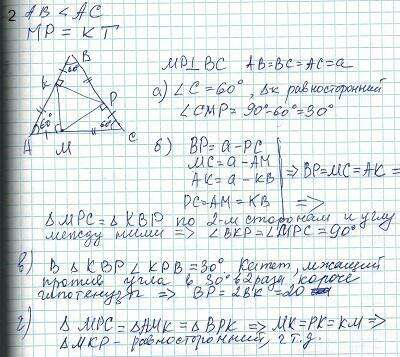 2 AB < AC
MP = KT
MP⊥BC AB=BC=AC=a
а) ∠C=60°, Δк равносторонний
∠CMP=90°-60°=30°
б) BP = a-PC
MC = a-AM
AK = a-KB ⇒ BP=MC=AK =
PC=AM=KB ⇒
ΔMPC=ΔKBP по 2-м сторонам и углу
между ними ⇒ ∠BKP=∠MPC=90°
в) В ΔKBP ∠KPB=30° Катет, лежащий
против угла в 30° в 2 раза короче
гипотенузы ⇒ BP=2BK=20
г) ΔMPC=ΔAMK=ΔBPK ⇒ MK=PK=KM ⇒
ΔMKP - равносторонний, ч.т.д.
B
60°
K
P
60°
60°
A M C